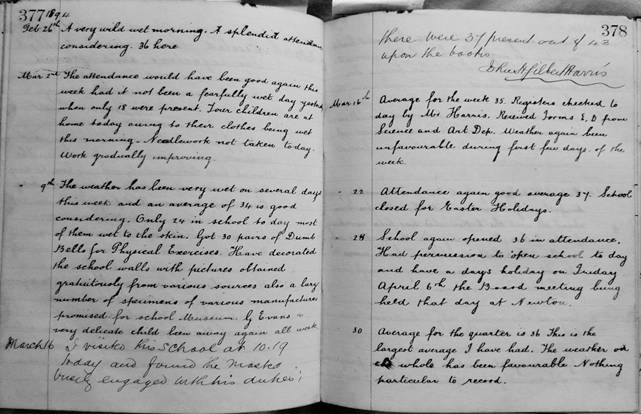 377
1894
Feb 26th A very wild wet morning. A splendid attendance
considering. 36 here
Mar 2nd The attendance would have been good again this
week had it not been a fearfully wet day yesterday
when only 18 were present. Four children are at
home today owing to their clothes being wet
this morning. Needlework not taken today.
Work gradually improving.
" 9th The weather has been very wet on several days
this week and an average of 34 is good
considering. Only 24 in school to day most
of them wet to the skin. Got 30 pairs of Dumb
Bells for Physical Exercises. Have decorated
the school walls with pictures obtained
gratuitously from various sources also a large
number of specimens of various manufactures
promised for school Museum. G Evans a
very delicate child been away again all week
March 16 I visited this School at 10.19
today and found the Master
busily engaged with his duties;
378
there were 37 present out of 43
upon the books
Gilbert Harris
Mar 16th Average for the week 35. Registers checked to
day by Mr Harris. Received Forms E.D from
Science and Art Dep. Weather again been
unfavourable during first few days of the
week.
" 22 Attendance again good average 37. School
closed for Easter Holidays.
" 28 School again opened 36 in attendance.
Had permission to open school to day
and have a days holiday on Friday
April 6th the Board meeting being
held that day at Newton.
30 Average for the quarter is 36 This is the
largest average I have had. The weather on
whole has been favourable Nothing
particular to record.